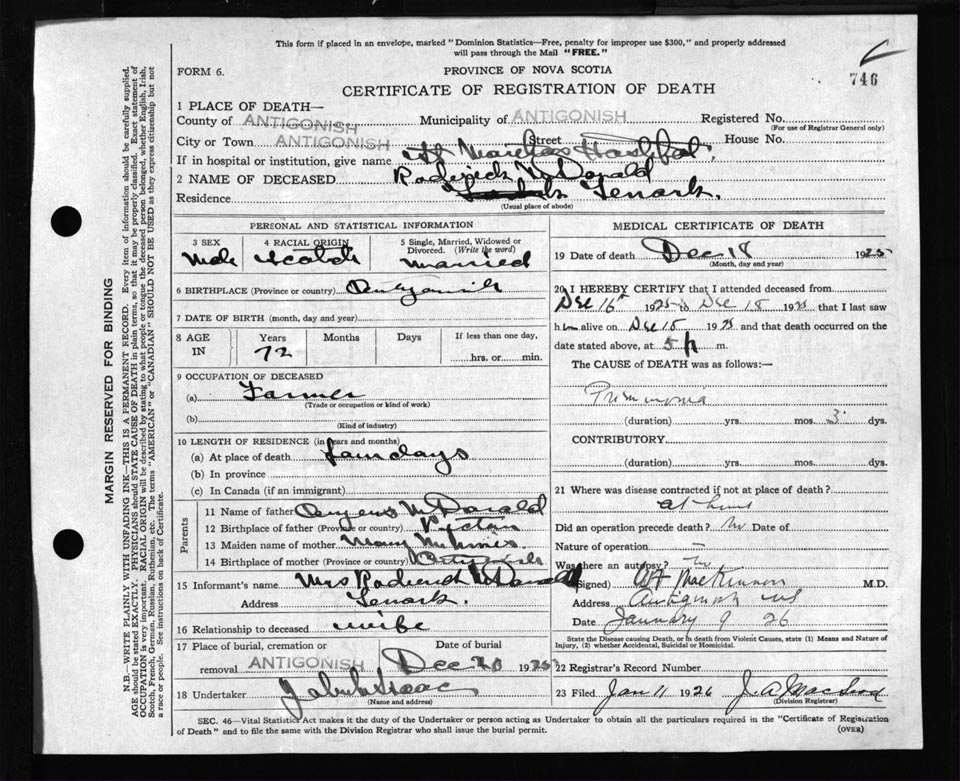 This form if placed in an envelope, marked "Dominion Statistics—Free, penalty for improper use $300," and properly addressed
will pass through the Mail "FREE."
FORM 6.
PROVINCE OF NOVA SCOTIA
746
CERTIFICATE OF REGISTRATION OF DEATH
1 PLACE OF DEATH—
County of ANTIGONISH Municipality of ANTIGONISH Registered No.
(For use of Registrar General only)
City or Town ANTIGONISH Street House No.
If in hospital or institution, give name St Marthas Hospital
2 NAME OF DECEASED Roderick McDonald
Residence
(Usual place of abode)
PERSONAL AND STATISTICAL INFORMATION
3 SEX 4 RACIAL ORIGIN 5 Single, Married, Widowed or Divorced. (Write the word)
Male Scotch Married
6 BIRTHPLACE (Province or country) Antigonish
7 DATE OF BIRTH (month, day and year)
8 AGE IN Years Months Days If less than one day,
72 hrs. or min.
9 OCCUPATION OF DECEASED
(a) Farmer
(Trade or occupation or kind of work)
(b)
(Kind of industry)
10 LENGTH OF RESIDENCE (in years and months)
(a) At place of death days
(b) In province
(c) In Canada (if an immigrant)
Parents
11 Name of father Angus McDonald
12 Birthplace of father (Province or country) Pictou
13 Maiden name of mother Mary
14 Birthplace of mother (Province or country) Antigonish
15 Informant's name Mrs Roderick McDonald
Address
16 Relationship to deceased wife
17 Place of burial, cremation or Date of burial
removal ANTIGONISH Dec 20 1925
18 Undertaker
(Name and address)
MEDICAL CERTIFICATE OF DEATH
19 Date of death Dec 18 1925
(Month, day and year)
20 I HEREBY CERTIFY that I attended deceased from
Dec 16th 1925 to Dec 18 1925 that I last saw
him alive on Dec 18 1925 and that death occurred on the
date stated above, at 5 p m.
The CAUSE of DEATH was as follows:—
Pneumonia
(duration) yrs. mos. 3 dys.
CONTRIBUTORY
(duration) yrs. mos. dys.
21 Where was disease contracted if not at place of death?
at home
Did an operation precede death? No Date of
Nature of operation —
Was there an autopsy? No
(Signed) MacKinnon M.D.
Address Antigonish NS
Date January 9 26
State the Disease causing Death, or in death from Violent Causes, state (1) Means and Nature of
Injury, (2) whether Accidental, Suicidal or Homicidal.
22 Registrar's Record Number
23 Filed Jan 11 1926 J. A. MacLeod
(Division Registrar)
SEC. 46—Vital Statistics Act makes it the duty of the Undertaker or person acting as Undertaker to obtain all the particulars required in the "Certificate of Registration
of Death" and to file the same with the Division Registrar who shall issue the burial permit.
(OVER)
MARGIN RESERVED FOR BINDING
N.B.—WRITE PLAINLY WITH UNFADING INK—THIS IS A PERMANENT RECORD. Every item of information should be carefully supplied.
AGE should be stated EXACTLY. PHYSICIANS should STATE CAUSE OF DEATH in plain terms, so that it may be properly classified. Exact statement of
OCCUPATION is very important. RACIAL ORIGIN will be described by stating to what people or tongue the deceased person belonged, whether English, Irish,
Scotch, French, German, Russian, Ruthenian, etc. The terms "AMERICAN" or "CANADIAN" SHOULD NOT BE USED as they express citizenship but not
a race or people. See instructions on back of Certificate.